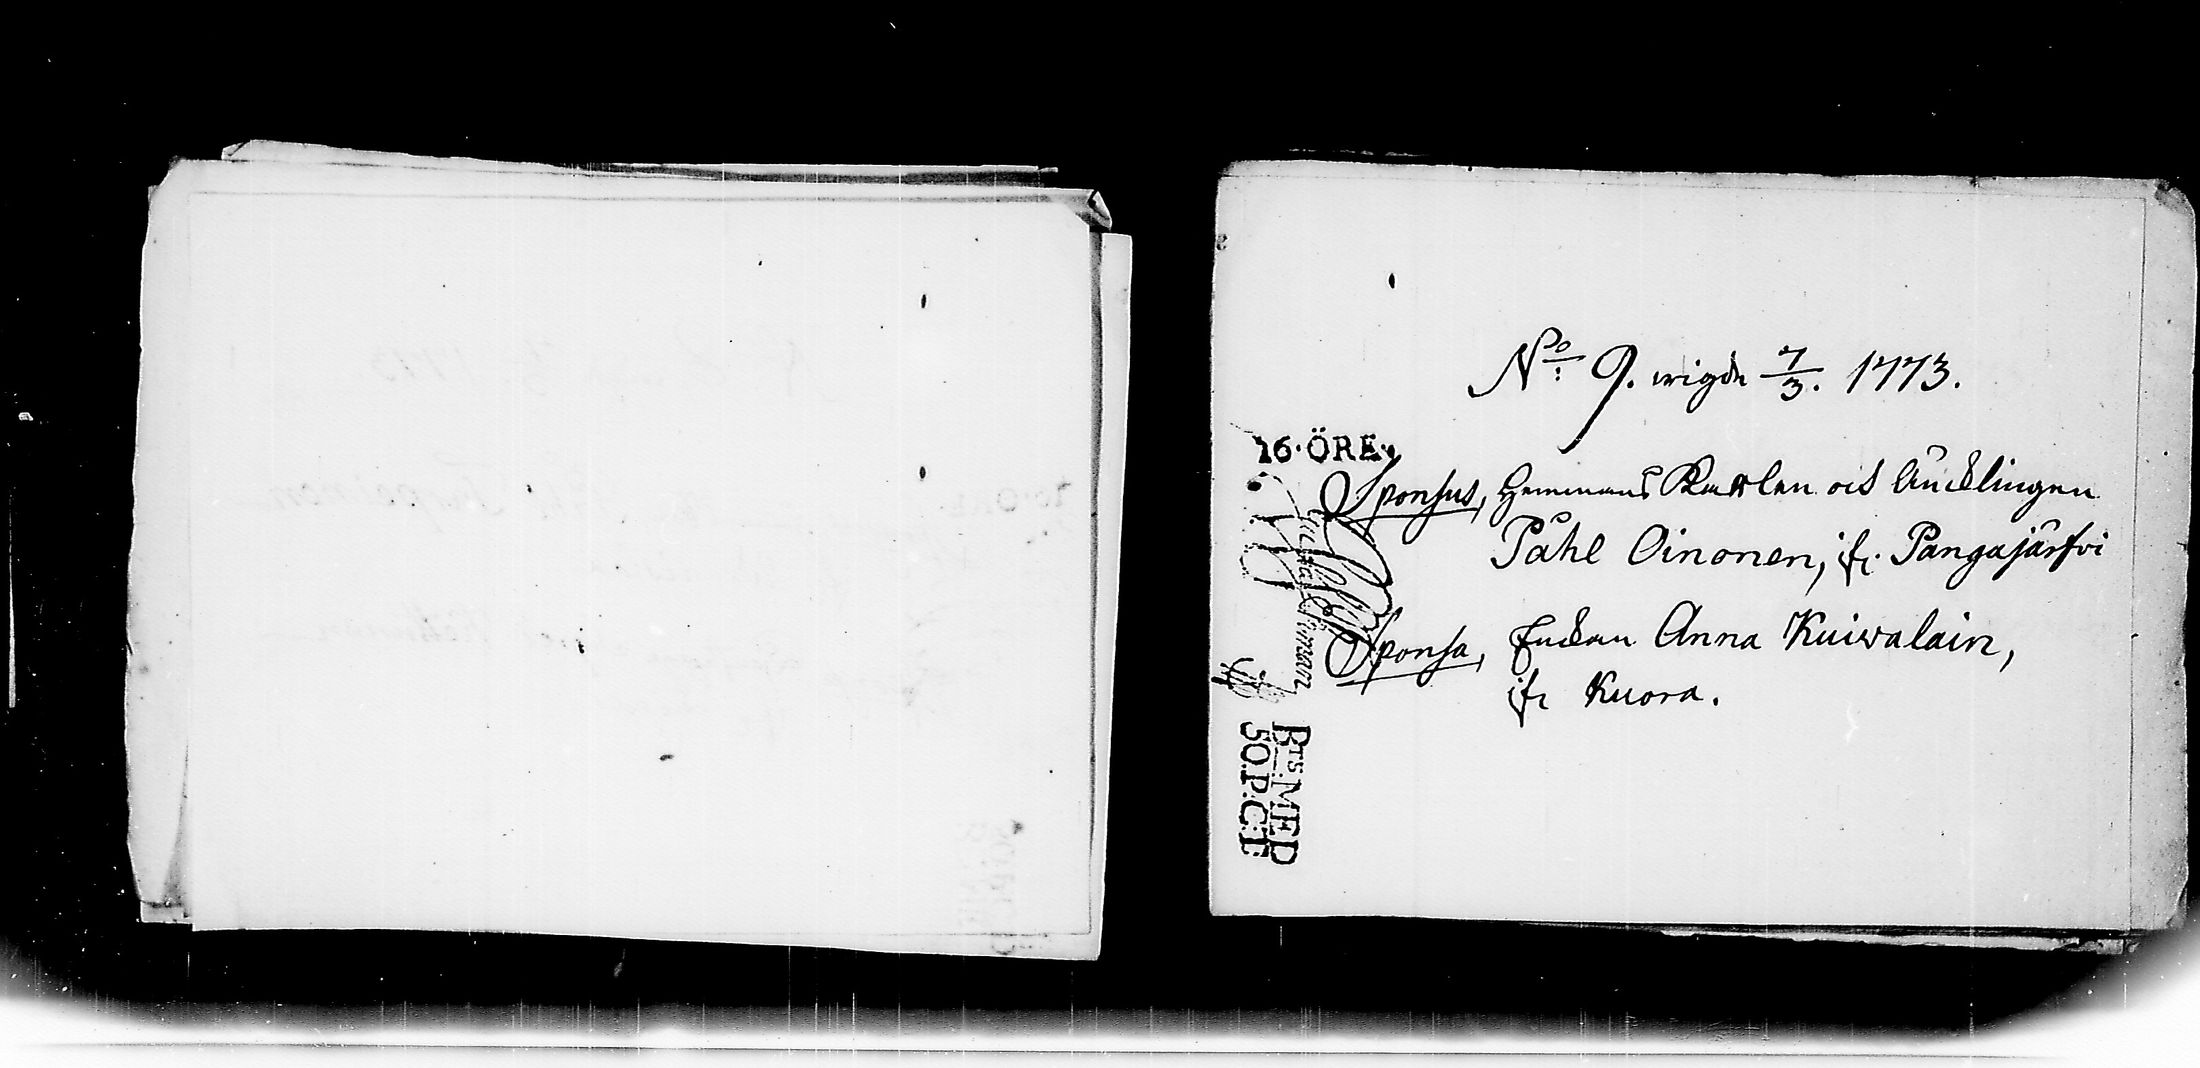 No: 9. wigde 7/3. 1773.
16·ÖRE·
Sponsus, Hemmans Karlen och Änklingen
Påhl Oinonen, ifr. Pangajärfvi
Sponsa, Enckan Anna Kuiwalain,
ifr Kuora.
BTS MED
50 P:C:T